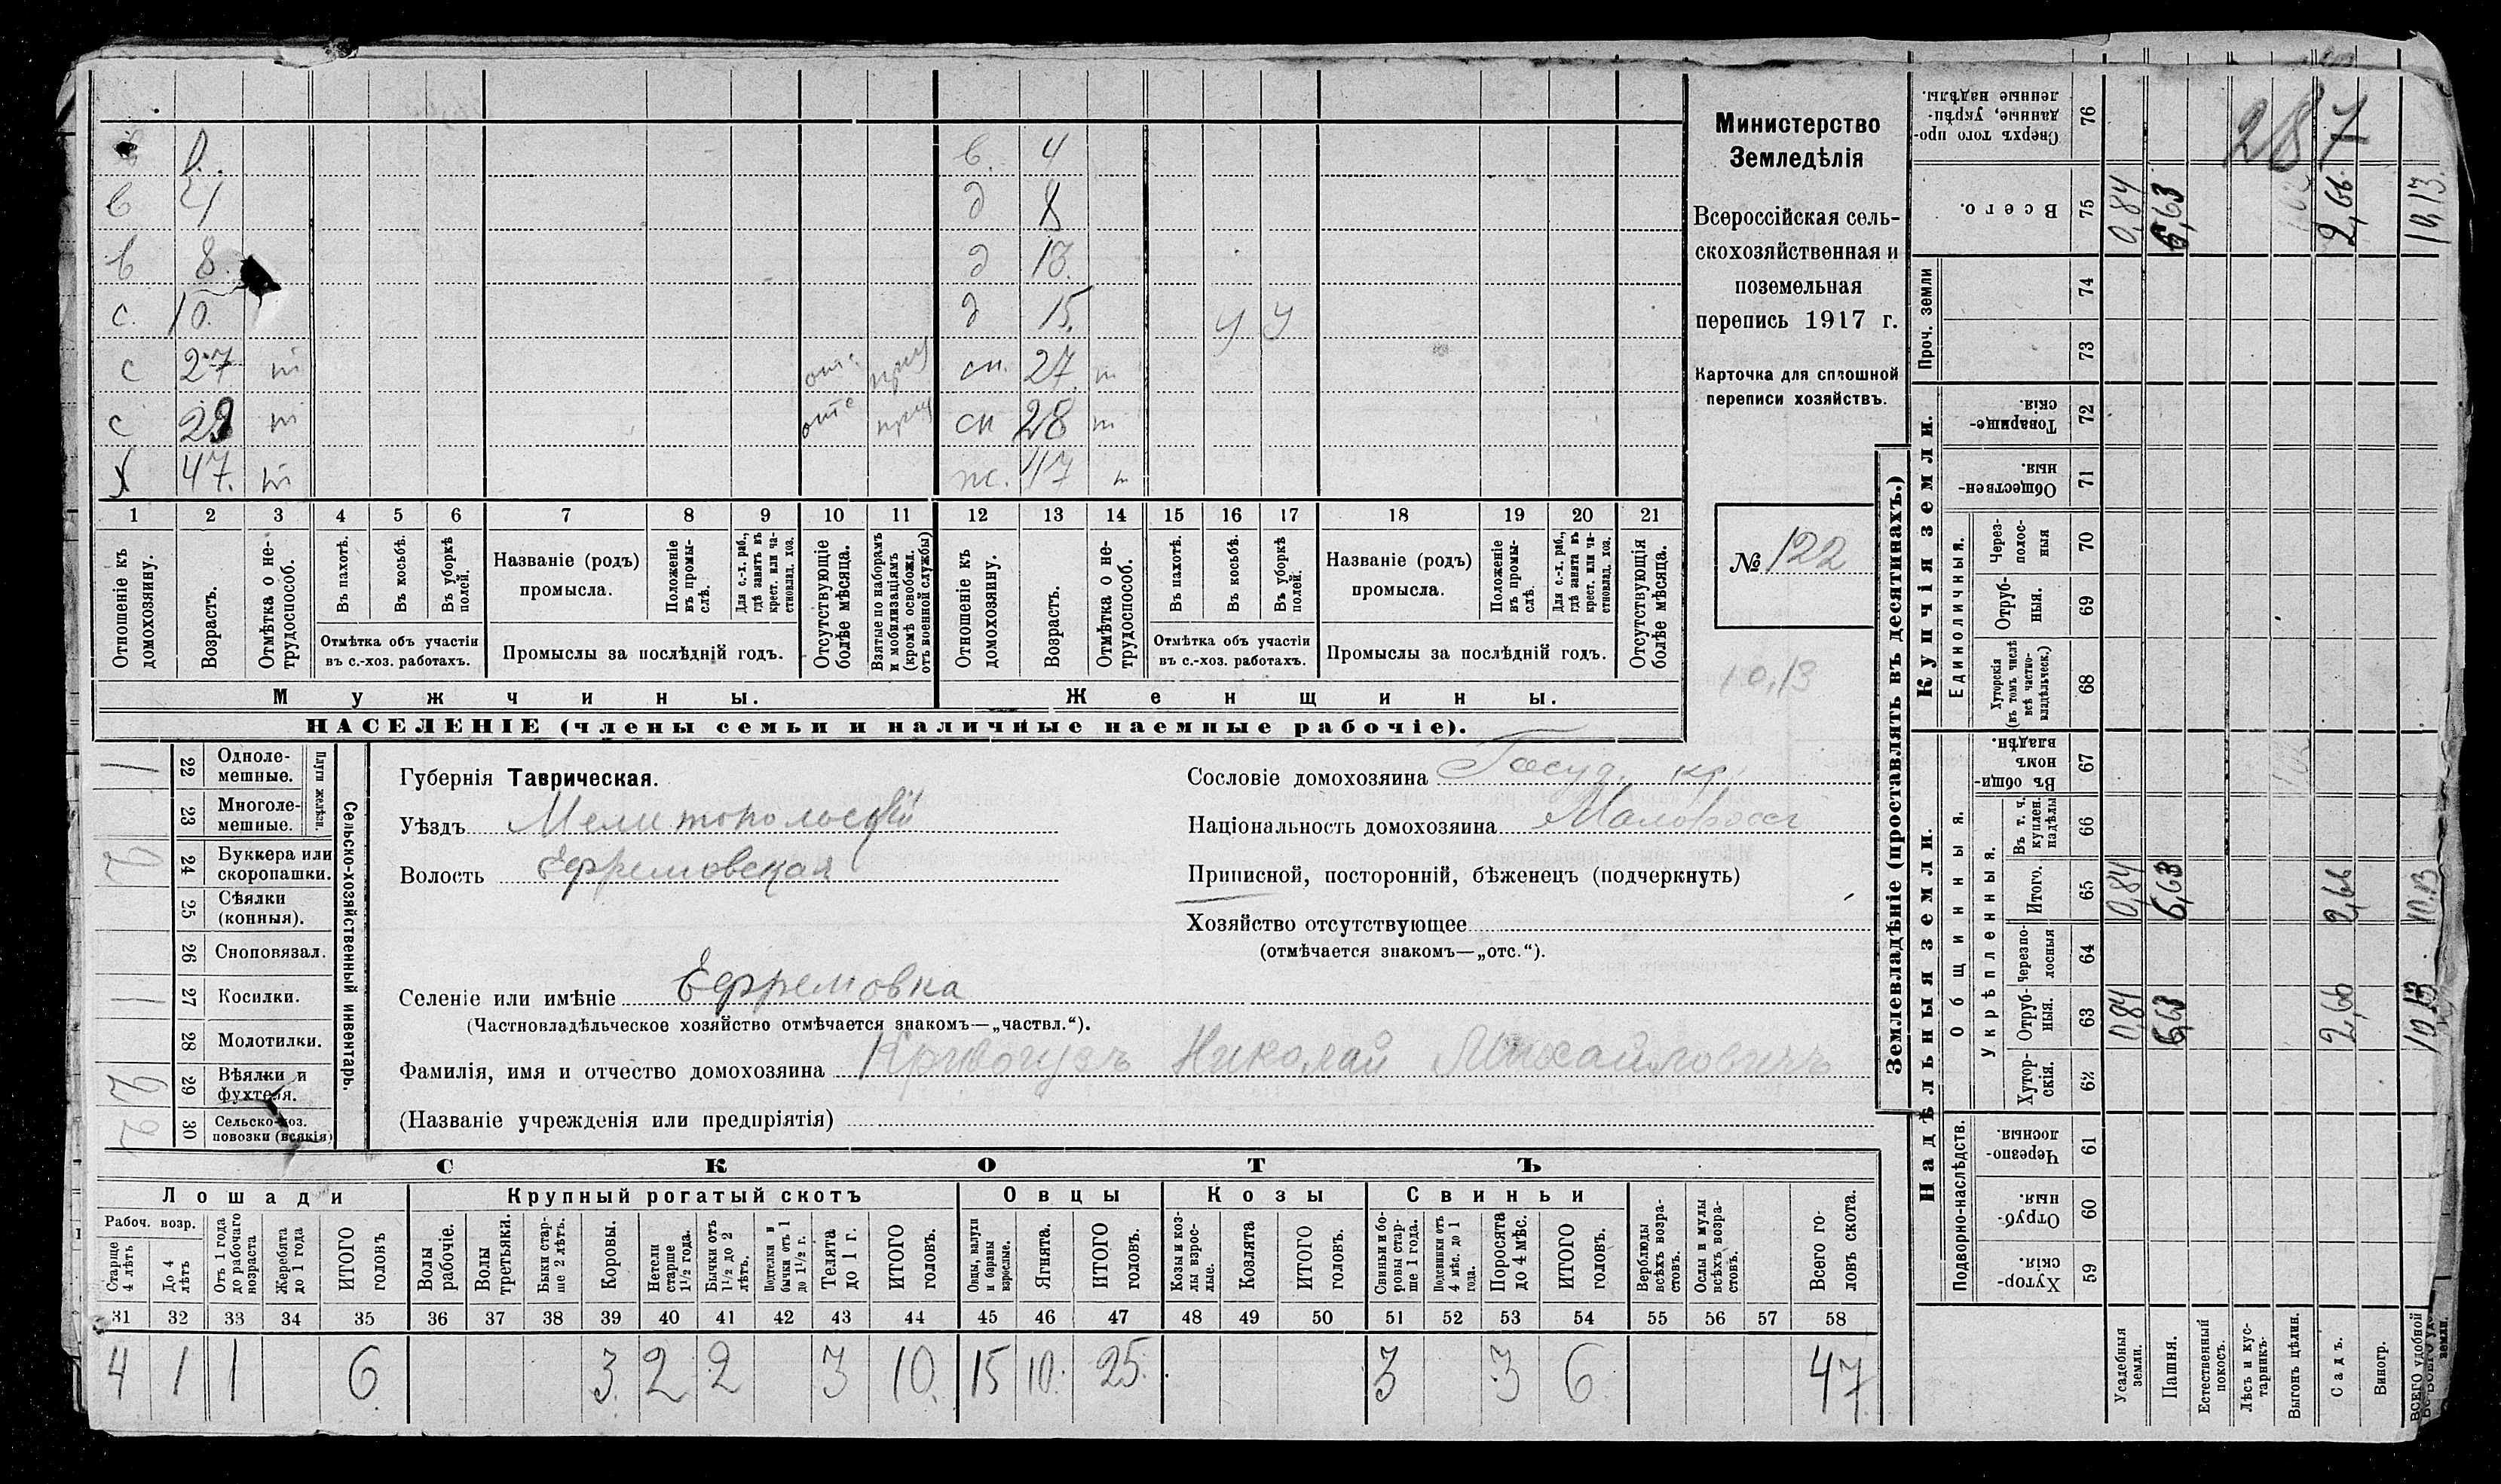 в 4
в 4 д 8
в 8. д 13.
с. 10. д 15. у у
с 27 т отс св. 27 т
с 29 т отс сн 28 т
х 47. т ж. 47 т
1 2 3 4 5 6 7 8 9 10 11 12 13 14 15 16 17 18 19 20 21
Отношеніе къ домохозяину.
Возрастъ.
Отмѣтка о не-трудоспособ.
Въ пахотѣ.
Въ косьбѣ.
Въ уборкѣ полей.
Отмѣтка объ участіи
въ с.-хоз. работахъ.
Названіе (родъ)
промысла.
Положеніе въ промы-слѣ.
Для с.-х. раб., гдѣ занятъ въ крест. или ча-стновлад. хоз.
Промыслы за послѣдній годъ.
Отсутствующіе болѣе мѣсяца.
Взятые по наборамъ и мобилизаціямъ (кромѣ освобожд. отъ военной службы)
Отношеніе къ домохозяину.
Возрастъ.
Отмѣтка о не-трудоспособ.
Въ пахотѣ.
Въ косьбѣ.
Въ уборкѣ полей.
Отмѣтка объ участіи
въ с.-хоз. работахъ.
Названіе (родъ)
промысла.
Положеніе въ промы-слѣ.
Для с.-х. раб., гдѣ занята въ крест. или ча-стновлад. хоз.
Промыслы за послѣдній годъ.
Отсутствующія болѣе мѣсяца.
Мужчины. Женщины.
НАСЕЛЕНІЕ (члены семьи и наличные наемные рабочіе).
Министерство
Земледѣлія
Всероссійская сель-
скохозяйственная и
поземельная
перепись 1917 г.
Карточка для сплошной
переписи хозяйствъ.
№ 122
10,13
1 22 Одноле-мешные.
23 Многоле-мешные.
Плуги желѣзн.
2 24 Буккера или скоропашки.
25 Сѣялки (конныя).
26 Сноповязал.
1 27 Косилки.
28 Молотилки.
2 29 Вѣялки и фухтеля.
2 30 Сельско-хоз. повозки (всякія)
Сельско-хозяйственный инвентарь.
Губернія Таврическая.
Уѣздъ Мелитопольскій
Волость Ефремовская
Селеніе или имѣніе Ефремовка
(Частновладѣльческое хозяйство отмѣчается знакомъ—„частвл.“).
Фамилія, имя и отчество домохозяина Кривогузъ Николай Михайловичъ
(Названіе учрежденія или предпріятія)
Сословіе домохозяина Госуд. кр.
Національность домохозяина Малоросс
Приписной, посторонній, бѣженецъ (подчеркнуть)
Хозяйство отсутствующее
(отмѣчается знакомъ—„отс.“).
СКОТЪ
Лошади Крупный рогатый скотъ Овцы Козы Свиньи
Рабоч. возр.
Старше 4 лѣтъ
До 4 лѣтъ
Отъ 1 года до рабочаго возраста
Жеребята до 1 года
ИТОГО головъ
Волы рабочіе.
Волы третьяки.
Быки стар-ше 2 лѣтъ.
Коровы.
Нетели старше 1½ года.
Бычки отъ 1½ до 2 лѣтъ.
Подтелки и бычки отъ 1 до 1½ г.
Телята до 1 г.
ИТОГО головъ.
Овцы, валухи и бараны взрослые.
Ягнята.
ИТОГО головъ.
Козы и коз-лы взрос-лые.
Козлята
ИТОГО головъ.
Свиньи и бо-ровы стар-ше 1 года.
Подсвинки отъ 4 мѣс. до 1 года.
Поросята до 4 мѣс.
ИТОГО головъ.
Верблюды всѣхъ возра-стовъ.
Ослы и мулы всѣхъ возра-стовъ.
Всего го-ловъ скота.
31 32 33 34 35 36 37 38 39 40 41 42 43 44 45 46 47 48 49 50 51 52 53 54 55 56 57 58
4 1 1 6 3. 2 2 3 10. 15 10. 25. 3 3 6 47
Землевладѣніе (проставлять въ десятинахъ.)
Купчія земли.
Надѣльныя земли.
Сверхъ того про-данные, укрѣп-ленные надѣлы. 76
287
Всего. 75 0,84 6,63 2,66 10,13.
Проч. земли 74 73
Товарище-скія. 72
Обществен-ныя. 71
Единоличныя.
Через-полос-ныя 70
Отруб-ныя. 69
Хуторскія (въ томъ числѣ всѣ частно-владѣльческ.) 68
Общинныя.
Въ общи-номъ владѣн. 67
Укрѣпленныя.
Въ т. ч. куплен. надѣлы 66
Итого. 65 0,84 6,63 2,66 10,13
Черезпо-лосныя 64
Отруб-ныя. 63 0,84 6,63 2,66 10,13
Хутор-скія. 62
Подворно-наслѣдств.
Черезпо-лосныя. 61
Отруб-ныя. 60
Хутор-скія. 59
Усадебныя земли.
Пашня.
Естественный покосъ.
Лѣсъ и кус-тарникъ.
Выгонъ цѣлин.
Садъ.
Виногр.
ВСЕГО удобной земли.